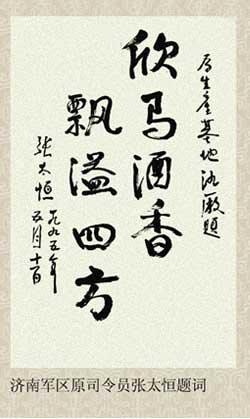 生产基地 题
欣马酒香
飘溢四方
张太恒
一九九五年
五月
济南军区原司令员张太恒题词